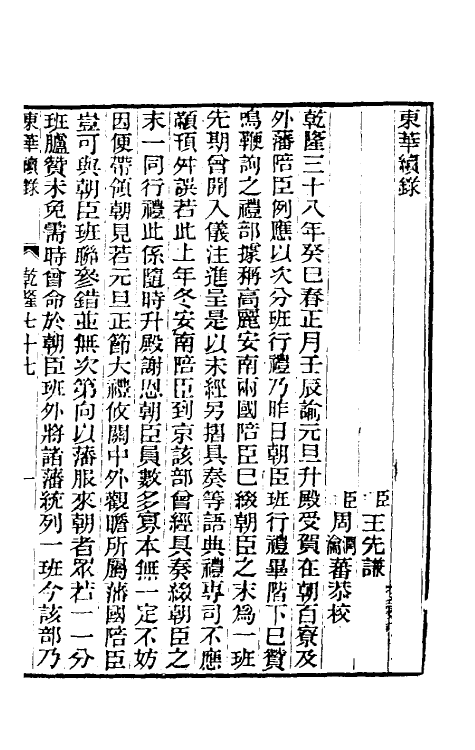 東華續錄
臣王先謙
臣周潤蕃恭校
乾隆三十八年癸巳春正月壬辰諭元旦升殿受賀在朝百寮及
外藩陪臣例應以次分班行禮乃昨日朝臣班行禮畢階下已贊
鳴鞭詢之禮部據稱高麗安南兩國陪臣已綴朝臣之末為一班
先期曾開入儀注進呈是以未經另摺具奏等語典禮專司不應
顢頇舛誤若此上年冬安南陪臣到京該部曾經具奏綴朝臣之
末一同行禮此係隨時升殿謝恩朝臣員數多寡本無一定不妨
因便帶領朝見若元旦正節大禮攸關中外觀瞻所屬藩國陪臣
豈可與朝臣班聯參錯並無次第向以藩服來朝者眾若一一分
班臚贊未免需時曾命於朝臣班外將諸藩統列一班今該部乃
東華續錄 乾隆七十七 一